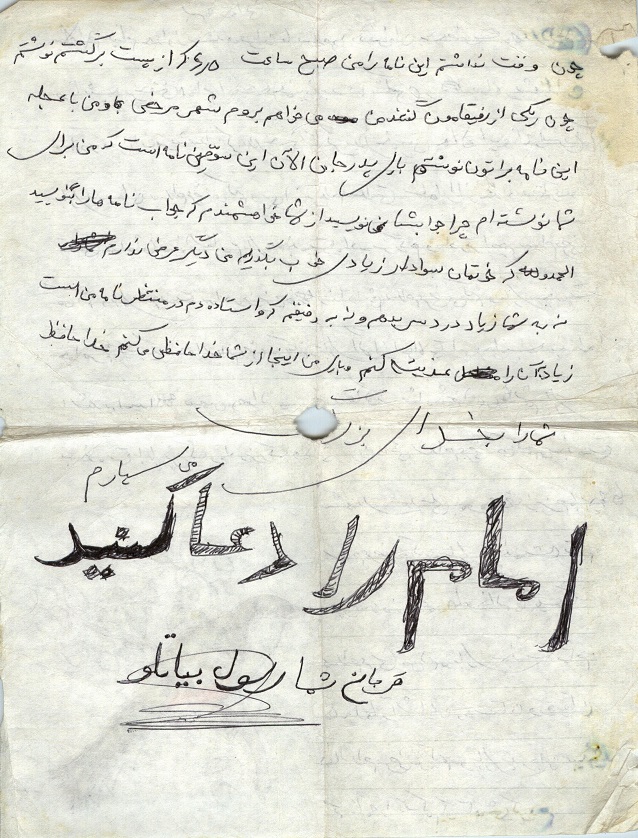 چون وقت نداشتم این نامه را من صبح ساعت که از پست برگشتم نوشتم
چون یکی از رفیقامون گفتند من می خواهم بروم شهر مرخصی و من با عجله
این نامه براتون نوشتم باری پدر جان الآن این سوّمین نامه است که من برای
شما نوشته ام چرا جواب نمی نویسید از شما خواهشمندم که جواب نامه ها را بنویسید
الحمدولله که خودتان سواد دار زیادی خوب بگذریم من دیگر عرضی ندارم
نه به شما زیاد درد سر بدهم و نه به رفیقم که واستاده دم در منتظر نامه من است
زیاد آن را کنم باری من اینجا از شما خدا حافظی می کنم خدا حافظ
شما را بخدای بزرگ
می سپارم
امام را دعا کنید
قربان شما رسول بیاتلو